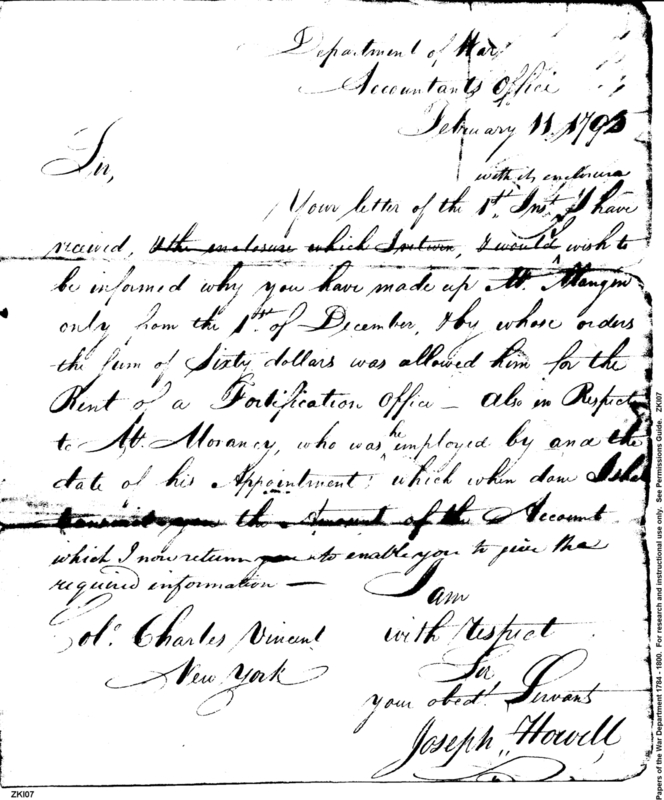 Department of War
Accountants Office
February 11. 1795
Sir,
with its enclosure
Your letter of the 1st. Inst. I have
received, & the enclosure which I return, & would wish to
be informed why you have made up Mr. Mangin
only from the 1st. of December, & by whose orders
the sum of Sixty dollars was allowed him for the
Rent of a Fortification Office – also in Respect
to Mr. Morancy, who was he employed by and the
date of his Appointment; which when done I shall
transmit you the Amount of the Account
which I now return you to enable you to give the
required information —
I am
Colo. Charles Vincent
with respect
New York
Sir
your obedt. Servant
Joseph Howell
ZKI07
Papers of the War Department 1784 - 1800. For research and instructional use only. See Permissions Guide. ZKI07